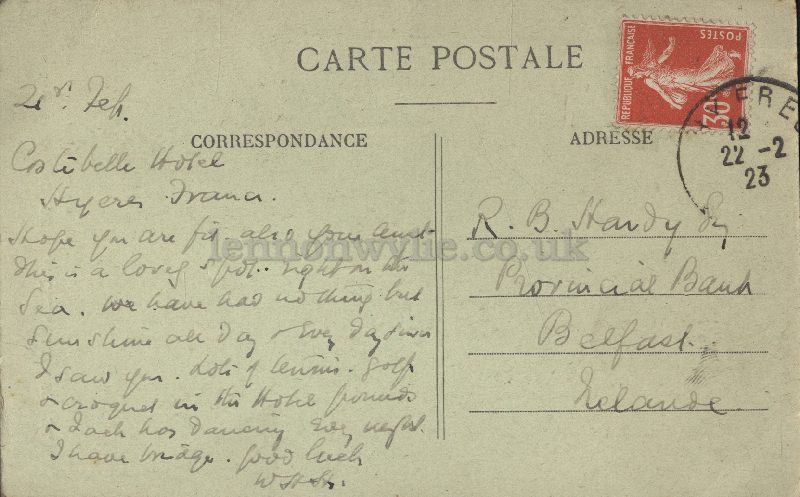 CARTE POSTALE
RÉPUBLIQUE FRANÇAISE
POSTES
30c
HYERES
12
22 -2
23
21st Feb.
CORRESPONDANCE
ADRESSE
Costebelle Hotel
Hyeres France.
I hope you are fit. also your Aunt
This is a lovely spot. right on the
Sea. We have had nothing but
Sunshine all Day & Every Day since
I saw you. Lots of tennis. Golf
& croquet in the Hotel grounds
& Zach has Dancing Every night.
I have bridge. Good luck
R. B. Hardy Esq
Provincial Bank
Belfast.
Irlande.
lennonwylie.co.uk